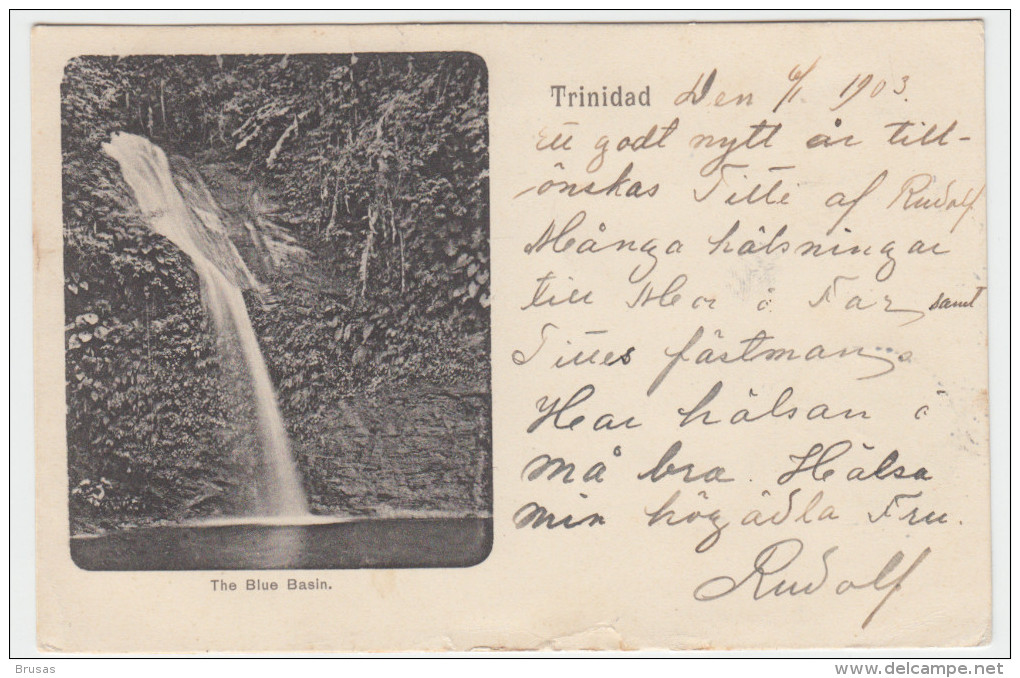 Trinidad Den 6/1 1903.
Ett godt nytt år till-
önskas Titti af Rudolf
Många hälsningar
till Mor å Far samt
Titties fästman
Har hälsan å
må bra. Hälsa
min högädla Fru.
Rudolf
The Blue Basin.
Brusas
www.delcampe.net